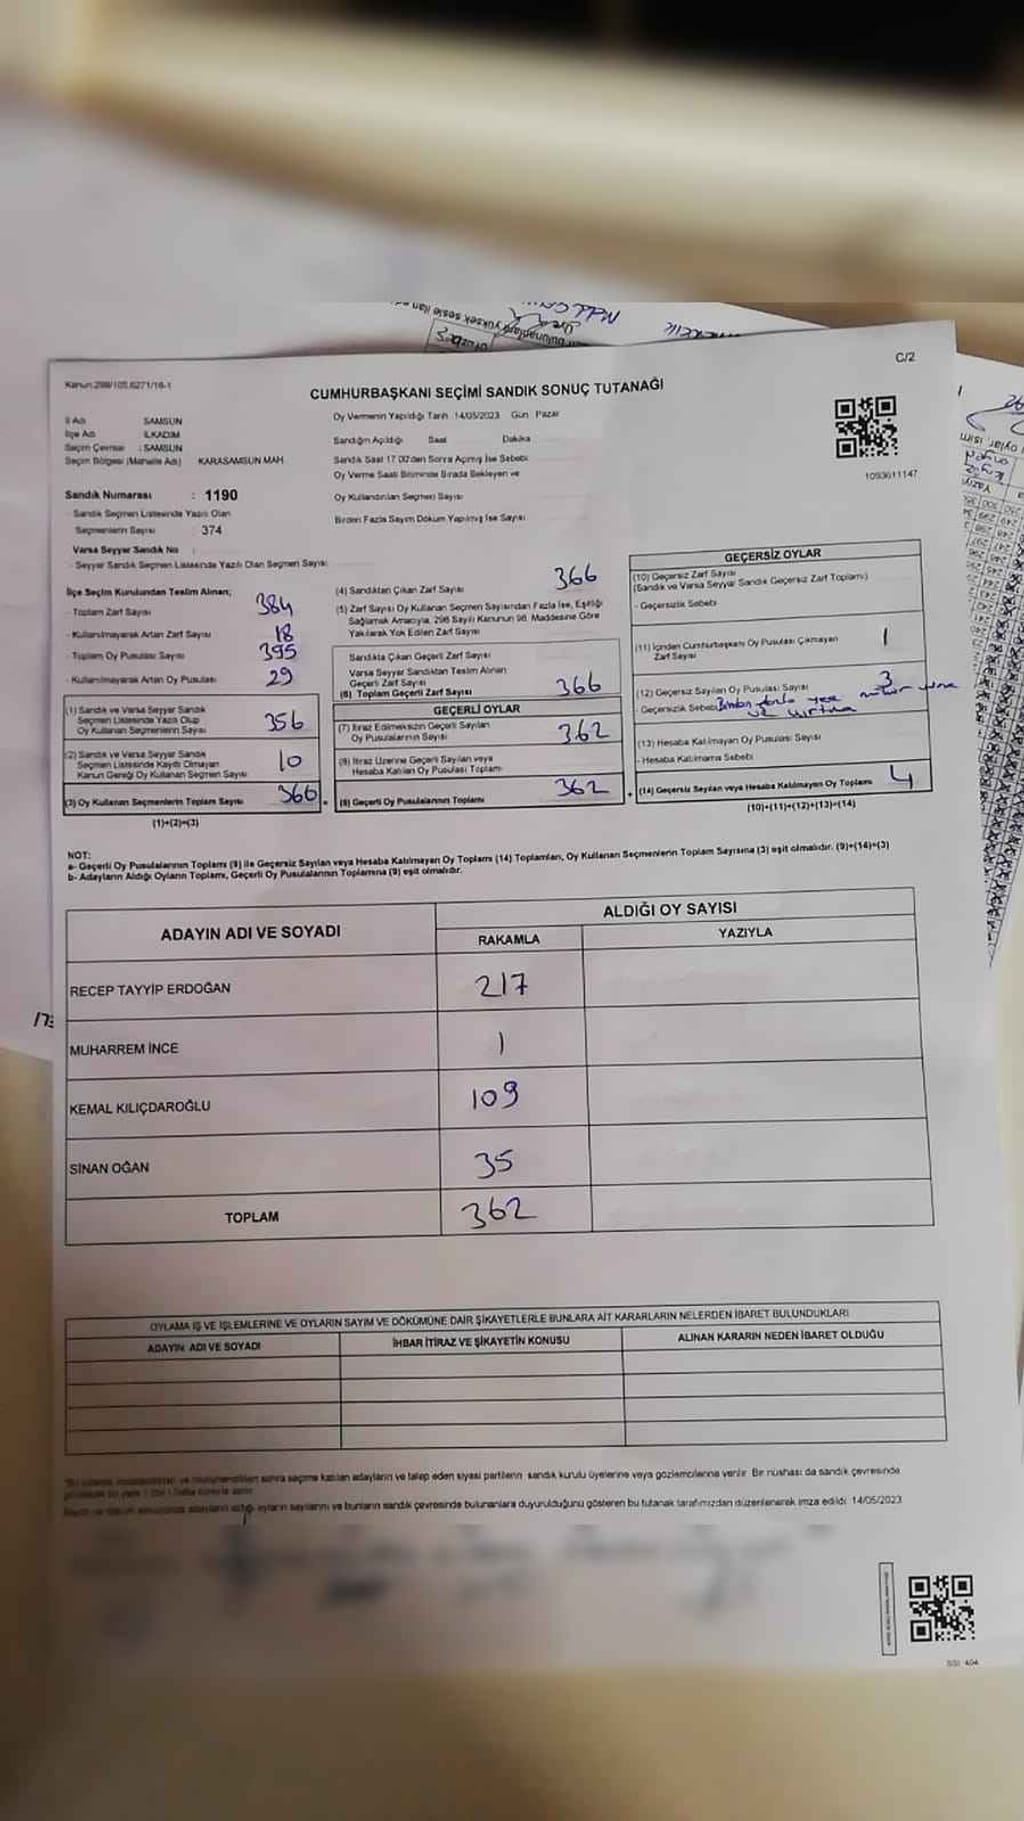 C/2
Kanun 298/105.6271/16-1
CUMHURBAŞKANI SEÇİMİ SANDIK SONUÇ TUTANAĞI
İl Adı SAMSUN
İlçe Adı İLKADIM
Seçim Çevresi : SAMSUN
Seçim Bölgesi (Mahalle Adı) KARASAMSUN MAH
Sandık Numarası : 1190
- Sandık Seçmen Listesinde Yazılı Olan
Seçmenlerin Sayısı 374
Varsa Seyyar Sandık No :
- Seyyar Sandık Seçmen Listesinde Yazılı Olan Seçmen Sayısı
Oy Vermenin Yapıldığı Tarih 14/05/2023 Gün Pazar
Sandığın Açıldığı Saat Dakika
Sandık Saat 17.00'den Sonra Açılmış İse Sebebi
Oy Verme Saati Bitiminde Sırada Bekleyen ve
Oy Kullandırılan Seçmen Sayısı
Birden Fazla Sayım Döküm Yapılmış İse Sayısı
1093611147
İlçe Seçim Kurulundan Teslim Alınan;
- Toplam Zarf Sayısı 384
- Kullanılmayarak Artan Zarf Sayısı 18
- Toplam Oy Pusulası Sayısı 395
- Kullanılmayarak Artan Oy Pusulası 29
(1) Sandık ve Varsa Seyyar Sandık
Seçmen Listesinde Yazılı Olup
Oy Kullanan Seçmenlerin Sayısı 356
(2) Sandık ve Varsa Seyyar Sandık
Seçmen Listesinde Kayıtlı Olmayan
Kanun Gereği Oy Kullanan Seçmen Sayısı 10
(3) Oy Kullanan Seçmenlerin Toplam Sayısı 366
(1)+(2)=(3)
(4) Sandıktan Çıkan Zarf Sayısı 366
(5) Zarf Sayısı Oy Kullanan Seçmen Sayısından Fazla İse, Eşitliği
Sağlamak Amacıyla, 298 Sayılı Kanunun 98. Maddesine Göre
Yakılarak Yok Edilen Zarf Sayısı
Sandıkta Çıkan Geçerli Zarf Sayısı
Varsa Seyyar Sandıktan Teslim Alınan
Geçerli Zarf Sayısı
(6) Toplam Geçerli Zarf Sayısı 366
GEÇERLİ OYLAR
(7) İtiraz Edilmeksizin Geçerli Sayılan
Oy Pusulalarının Sayısı 362
(8) İtiraz Üzerine Geçerli Sayılan veya
Hesaba Katılan Oy Pusulası Toplamı
(9) Geçerli Oy Pusulalarının Toplamı 362
GEÇERSİZ OYLAR
(10) Geçersiz Zarf Sayısı
(Sandık ve Varsa Seyyar Sandık Geçersiz Zarf Toplamı)
- Geçersizlik Sebebi
(11) İçinden Cumhurbaşkanı Oy Pusulası Çıkmayan 1
Zarf Sayısı
(12) Geçersiz Sayılan Oy Pusulası Sayısı 3
- Geçersizlik Sebebi Birden fazla yere mühür
(13) Hesaba Katılmayan Oy Pusulası Sayısı
- Hesaba Katılmama Sebebi
(14) Geçersiz Sayılan veya Hesaba Katılmayan Oy Toplamı 4
(10)+(11)+(12)+(13)=(14)
NOT:
a- Geçerli Oy Pusulalarının Toplamı (9) ile Geçersiz Sayılan veya Hesaba Katılmayan Oy Toplamı (14) Toplamları, Oy Kullanan Seçmenlerin Toplam Sayısına (3) eşit olmalıdır. (9)+(14)=(3)
b- Adayların Aldığı Oyların Toplamı, Geçerli Oy Pusulalarının Toplamına (9) eşit olmalıdır.
ADAYIN ADI VE SOYADI ALDIĞI OY SAYISI
RAKAMLA YAZIYLA
RECEP TAYYİP ERDOĞAN 217
MUHARREM İNCE 1
KEMAL KILIÇDAROĞLU 109
SİNAN OĞAN 35
TOPLAM 362
OYLAMA İŞ VE İŞLEMLERİNE VE OYLARIN SAYIM VE DÖKÜMÜNE DAİR ŞİKAYETLERLE BUNLARA AİT KARARLARIN NELERDEN İBARET BULUNDUKLARI
ADAYIN ADI VE SOYADI İHBAR İTİRAZ VE ŞİKAYETİN KONUSU ALINAN KARARIN NEDEN İBARET OLDUĞU
sonra seçime katılan adayların ve talep eden siyasi partilerin sandık kurulu üyelerine veya gözlemcilerine verilir. Bir nüshası da sandık çevresinde
oyların sayılarını ve bunların sandık çevresinde bulunanlara duyurulduğunu gösteren bu tutanak tarafımızdan düzenlenerek imza edildi. 14/05/2023